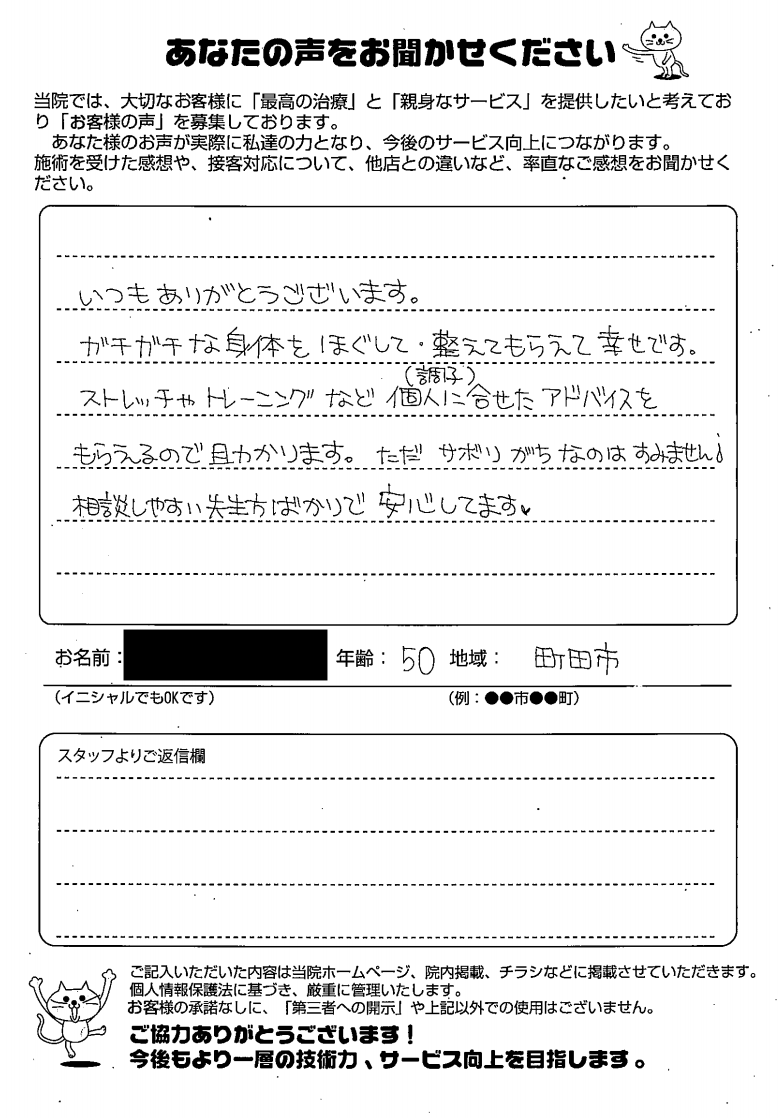 あなたの声をお聞かせください
当院では、大切なお客様に「最高の治療」と「親身なサービス」を提供したいと考えてお
り「お客様の声」を募集しております。
あなた様のお声が実際に私達の力となり、今後のサービス向上につながります。
施術を受けた感想や、接客対応について、他店との違いなど、率直なご感想をお聞かせく
ださい。
いつもありがとうございます。
ガチガチな身体をほぐして・整えてもらえて幸せです。
(調子)
ストレッチャトレーニングなど個人に合せたアドバイスを
もらえるので助かります。ただサボりがちなのはすみません!
相談しやすい先生方ばかりで安心してます♥
お名前: 年齢:50 地域: 町田市
(イニシャルでもOKです) (例:●●市●●町)
スタッフよりご返信欄
ご記入いただいた内容は当院ホームページ、院内掲載、チラシなどに掲載させていただきます。
個人情報保護法に基づき、厳重に管理いたします。
お客様の承諾なしに、「第三者への開示」や上記以外での使用はございません。
ご協力ありがとうございます!
今後もより一層の技術力、サービス向上を目指します。